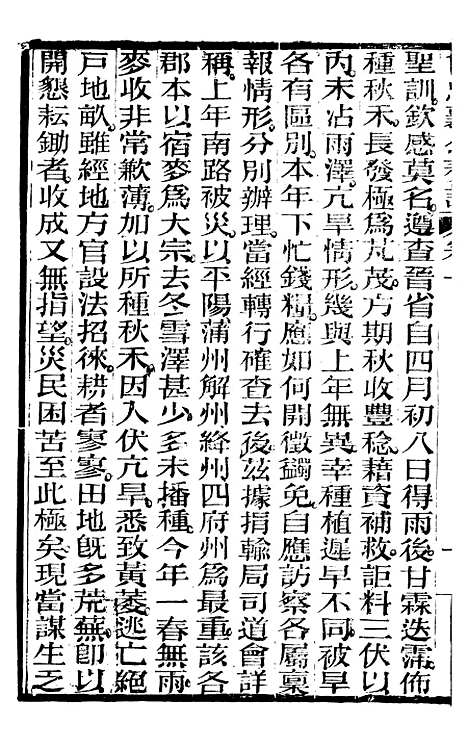 聖訓欽感莫名遵查晉省自四月初八日得雨後甘霖迭霈佈
種秋禾長發極爲芃茂方期秋收豐稔藉資補救詎料三伏以
內未沾雨澤亢旱情形幾與上年無異幸種植遲早不同被旱
各有區別本年下忙錢糧應如何開徵蠲免自應訪察各屬稟
報情形分別辦理當經轉行確查去後茲據捐輸局司道會詳
稱上年南路被災以平陽蒲州解州絳州四府州爲最重該各
郡本以宿麥爲大宗去冬雪澤甚少多未播種今年一春無雨
麥收非常歉薄加以所種秋禾因入伏亢旱悉致黃萎逃亡絕
戸地畝雖經地方官設法招徠耕者寥寥田地旣多荒蕪卽以
開懇耘鋤者收成又無指望災民困苦至此極矣現當謀生之